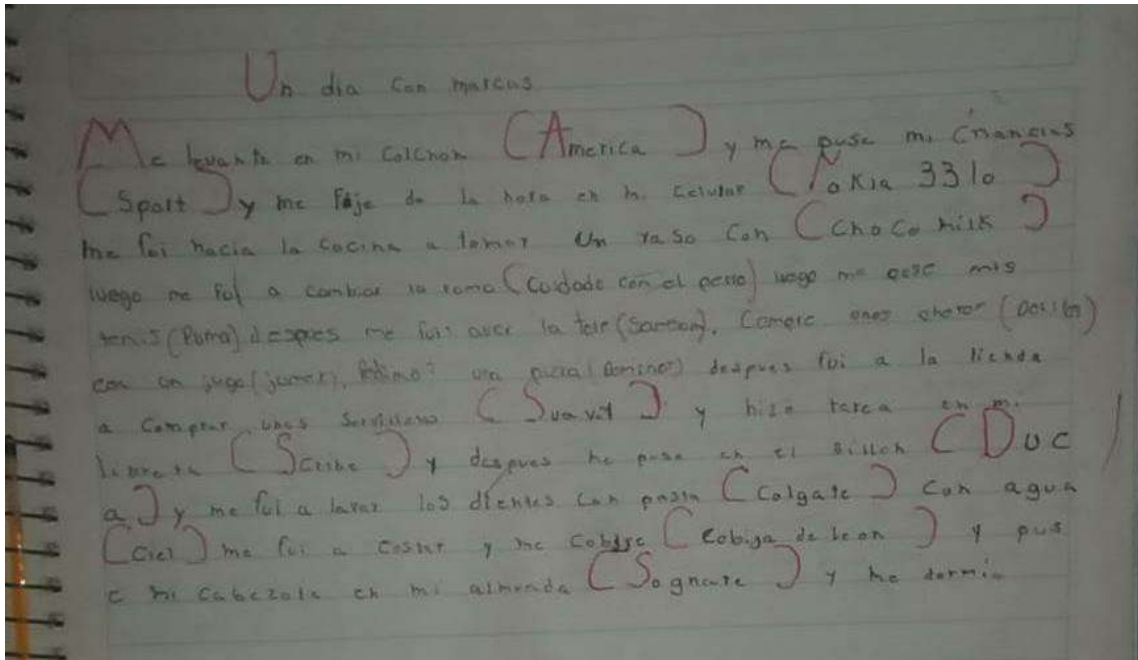 Un dia con marcas
Me levante en mi colchon (America) y me puse mi
(Sport) y me Fije de la hora en mi celular (Nokia 3310)
me fui hacia la cocina a tomar un vaso con (Choco milk)
luego me fui a cambiar la (Cuidado con el perro) luego me puse mis
tenis (Puma) despues me fui aver la tele (Samson), Comerc unos (
con un jugo (jumex), una pizza (Dominos) despues fui a la tienda
a comprar unas (Suavit) y hize tarea en mi
libreta (Scribe) y despues me puse en el sillon (Duc
a) y me fui a lavar los dientes con pasta (Colgate) con agua
(Ciel) me fui a costar y me (Cobiga de leon) y pus
e mi en mi (Sognare) y me dormi